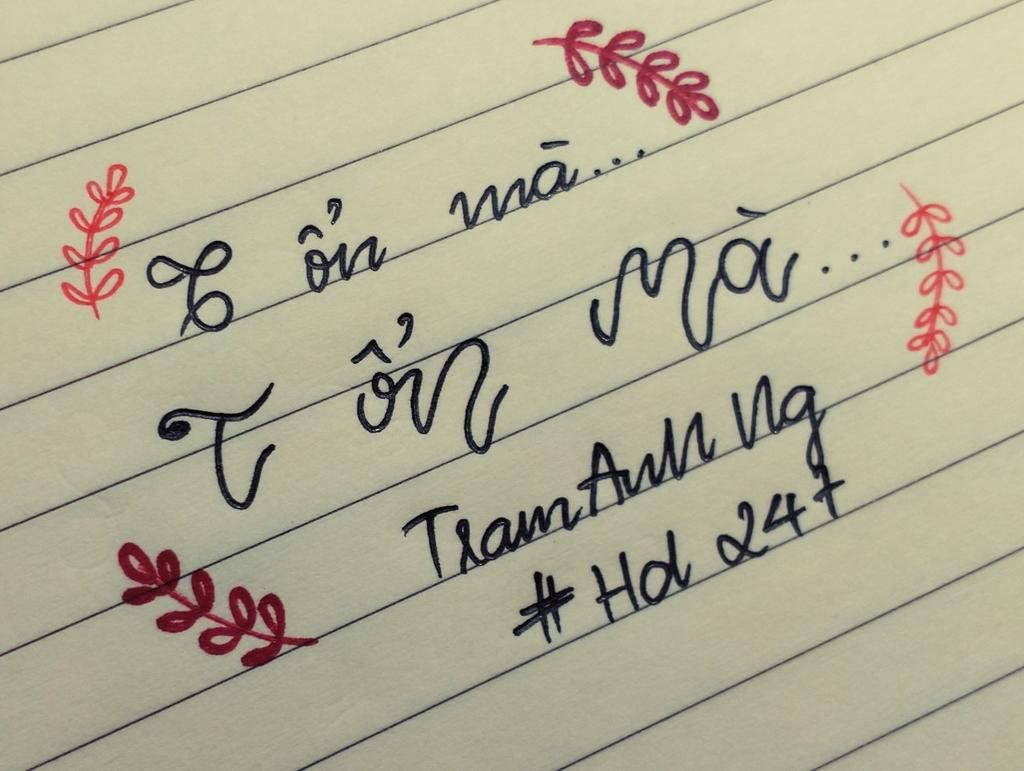 T ổn mà...
T ổn mà...
TramAnh Ng
# Hd 24+